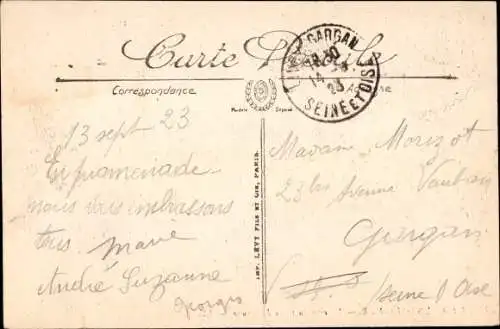 Carte Postale
Correspondance
Modèle Déposé
GARGAN
14
23
SEINE ET OISE
IMP. LÉVY FILS ET CIE, PARIS.
13 sept 23
En promenade
nous vous embrassons
tous Marie
André Suzanne
Georges
Madame Morizot
23 bis Avenue Vauban
Gargan
Seine & Oise